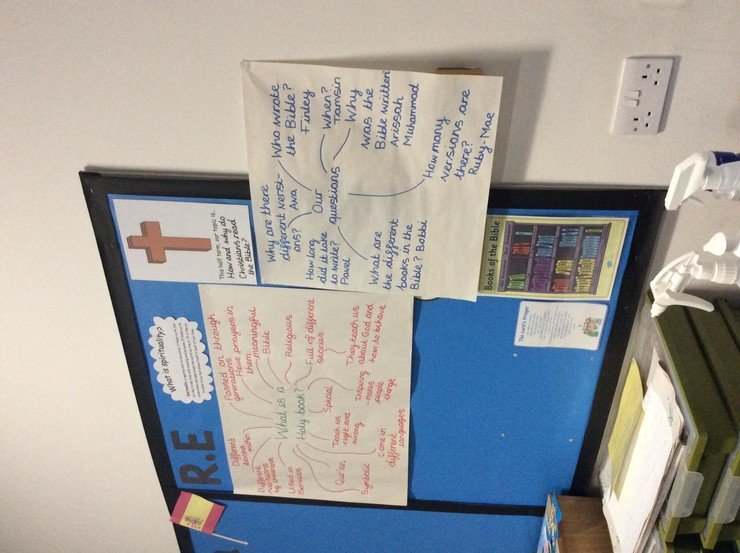 R.E
What is spirituality?
This half term our topic is:
How and why do
Christians read
the Bible?
What is a
Holy book?
Different
books
within
Passed on through
generations
Have prayers in
them
meaningful
Bible
Religious
Full of different
stories
They teach us
about God and
how to behave
Inspiring
-makes
people
change
Special
Teach us
right and
wrong
Come in
different
languages
Qur'an
Symbolic
Used in
Different
Our
questions
Why are there
different versi-
ons? Ava
Who wrote
the Bible?
Finley
When?
Tamsin
Why
was the
Bible written
Arissah
Muhammad
How many
versians are
there?
Ruby-Mae
What are
the different
books in the
Bible? Bobbi
How long
did it take
to write?
Pavel
Books of the Bible
The Lord's Prayer